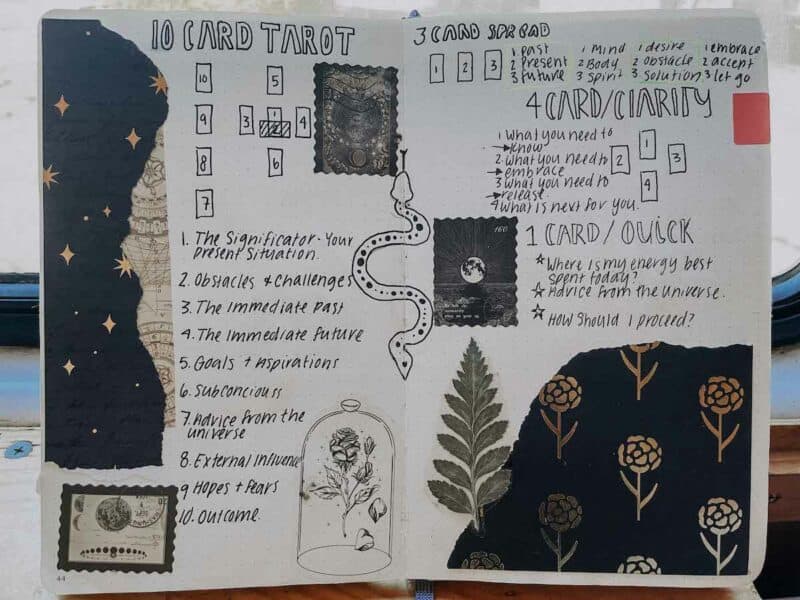 10 CARD TAROT
10
5
9
3
1
2
4
8
6
7
1. The Significator - Your
Present Situation.
2. Obstacles & Challenges
3. The Immediate Past
4. The Immediate Future
5. Goals + Aspirations
6. Subconciouss
7. Advice from the
universe
8. External Influence
9 Hopes + Fears
10. Outcome.
44
3 CARD SPREAD
1 2 3
1 Past 1 Mind 1 desire 1 embrace
2 Present 2 Body 2 Obstacle 2 accept
3 Future 3 Spirit 3 Solution 3 let go
4 CARD/CLARITY
1 What you need to
know
2. What you need to
embrace
3 What you need to
release.
4 What is next for you.
1
2
3
4
160
1 CARD / QUICK
Where is my energy best
spent today?
Advice from the universe.
How should I proceed?